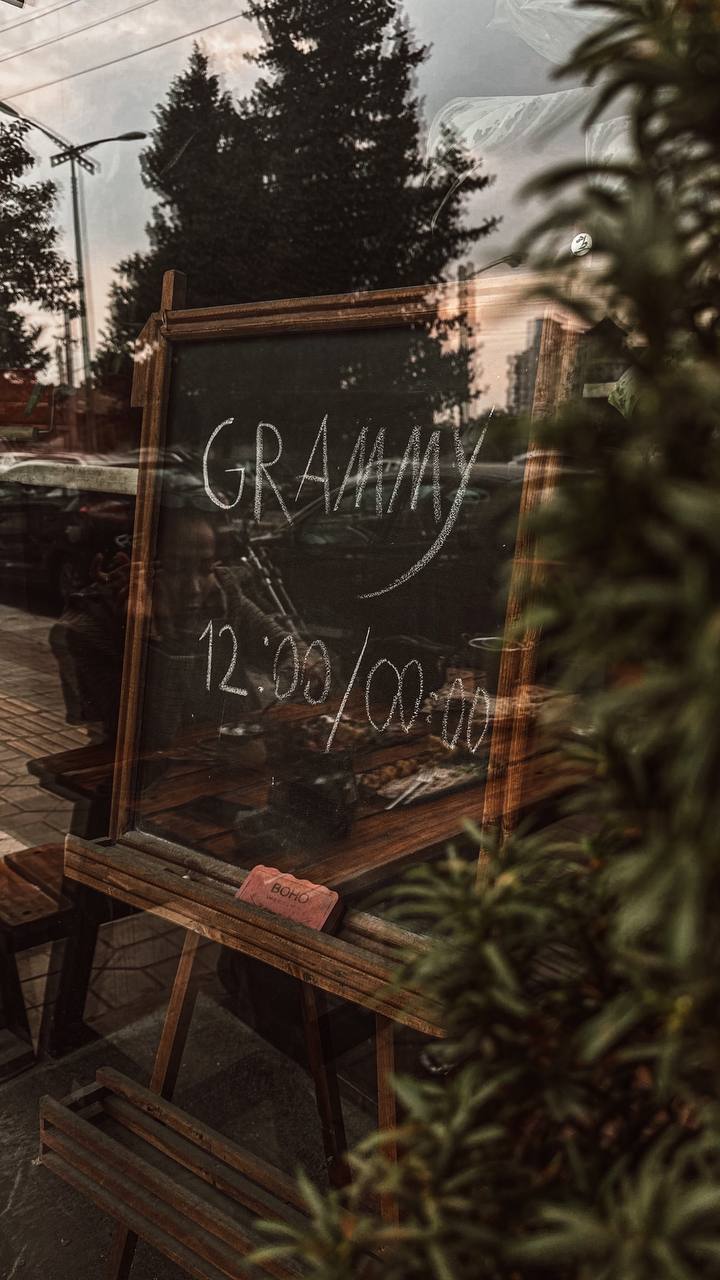 GRAMMY
12:00/00:00
BOHO